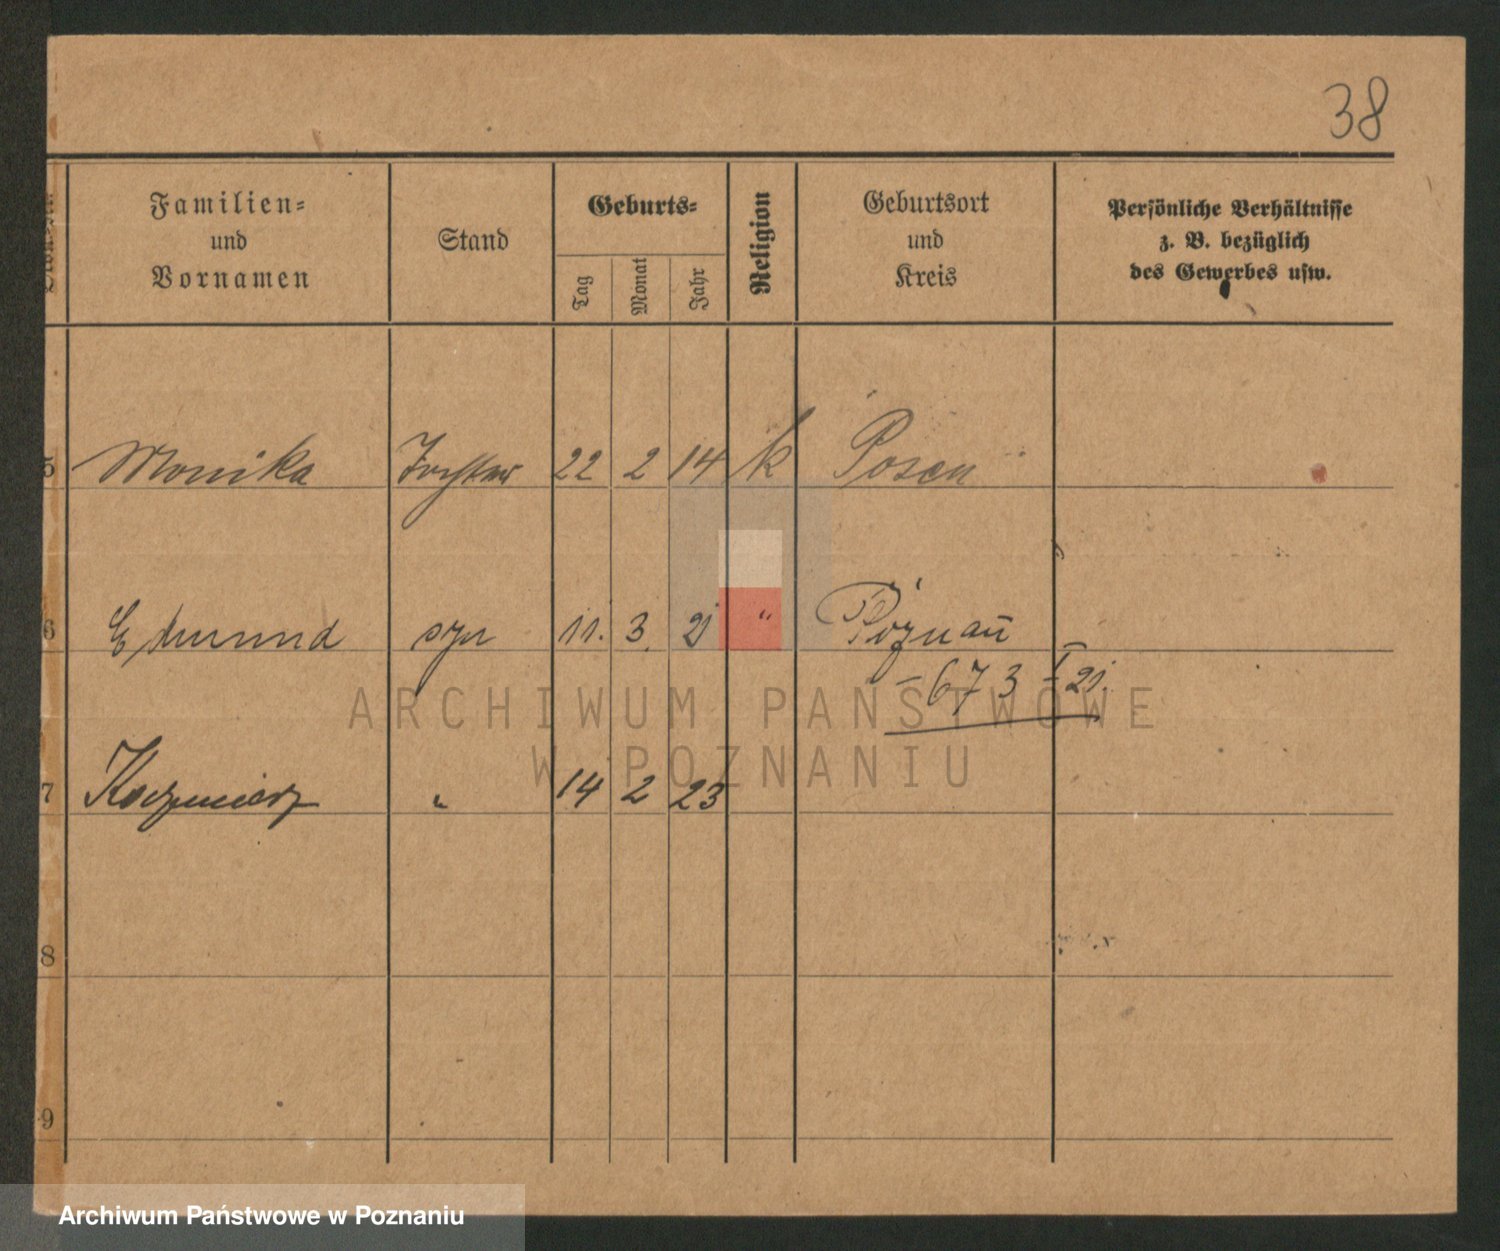 38
Familien-
und
Vornamen
Stand
Geburts-
Tag
Monat
Jahr
Religion
Geburtsort
und
Kreis
Persönliche Verhältnisse
z. B. bezüglich
des Gewerbes usw.
5 Monika Tochter 22 2 14 k Posen
6 Edmund syn 11. 3. 21 " Poznań
– 673 I 21.
ARCHIWUM PAŃSTWOWE
W POZNANIU
7 Kazimierz " 14 2 23
8
9
Archiwum Państwowe w Poznaniu